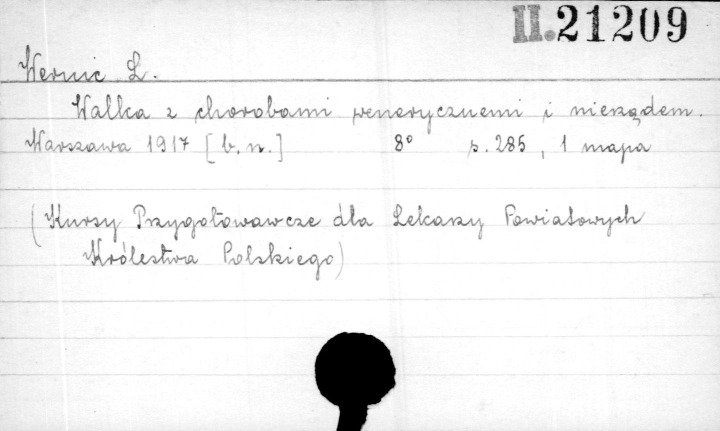 II.21209
Wernic L.
Walka z chorobami wenerycznemi i nierządem.
Warszawa 1917 [b.n.] 8° s. 285, 1 mapa
(Kursy Przygotowawcze dla Lekarzy Powiatowych
Królestwa Polskiego)